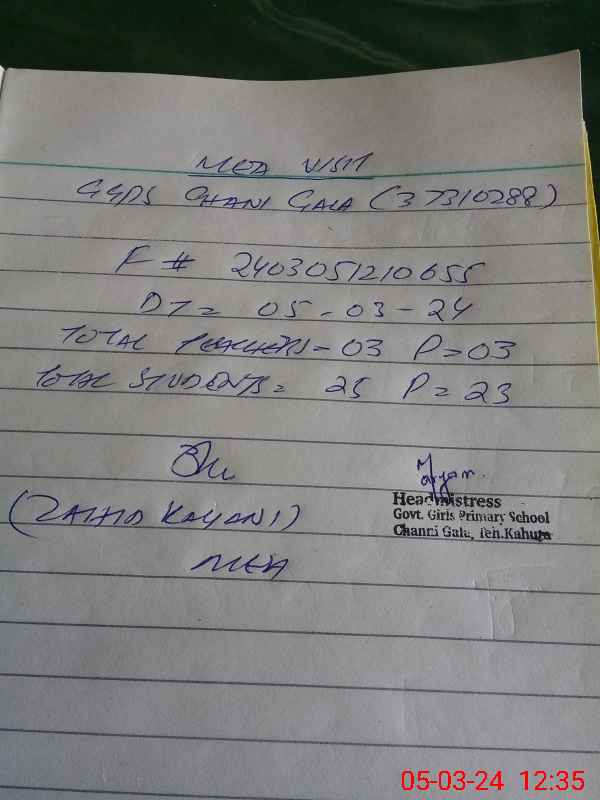 MEA VISIT
GGPS CHANI GALA (37310288)
F # 2403051210655
DT = 05-03-24
TOTAL TEACHERS = 03 P = 03
TOTAL STUDENTS = 25 P = 23
(ZAHID KAYANI)
MEA
Headmistress
Govt. Girls Primary School
Channi Gala, Teh. Kahuta
05-03-24 12:35